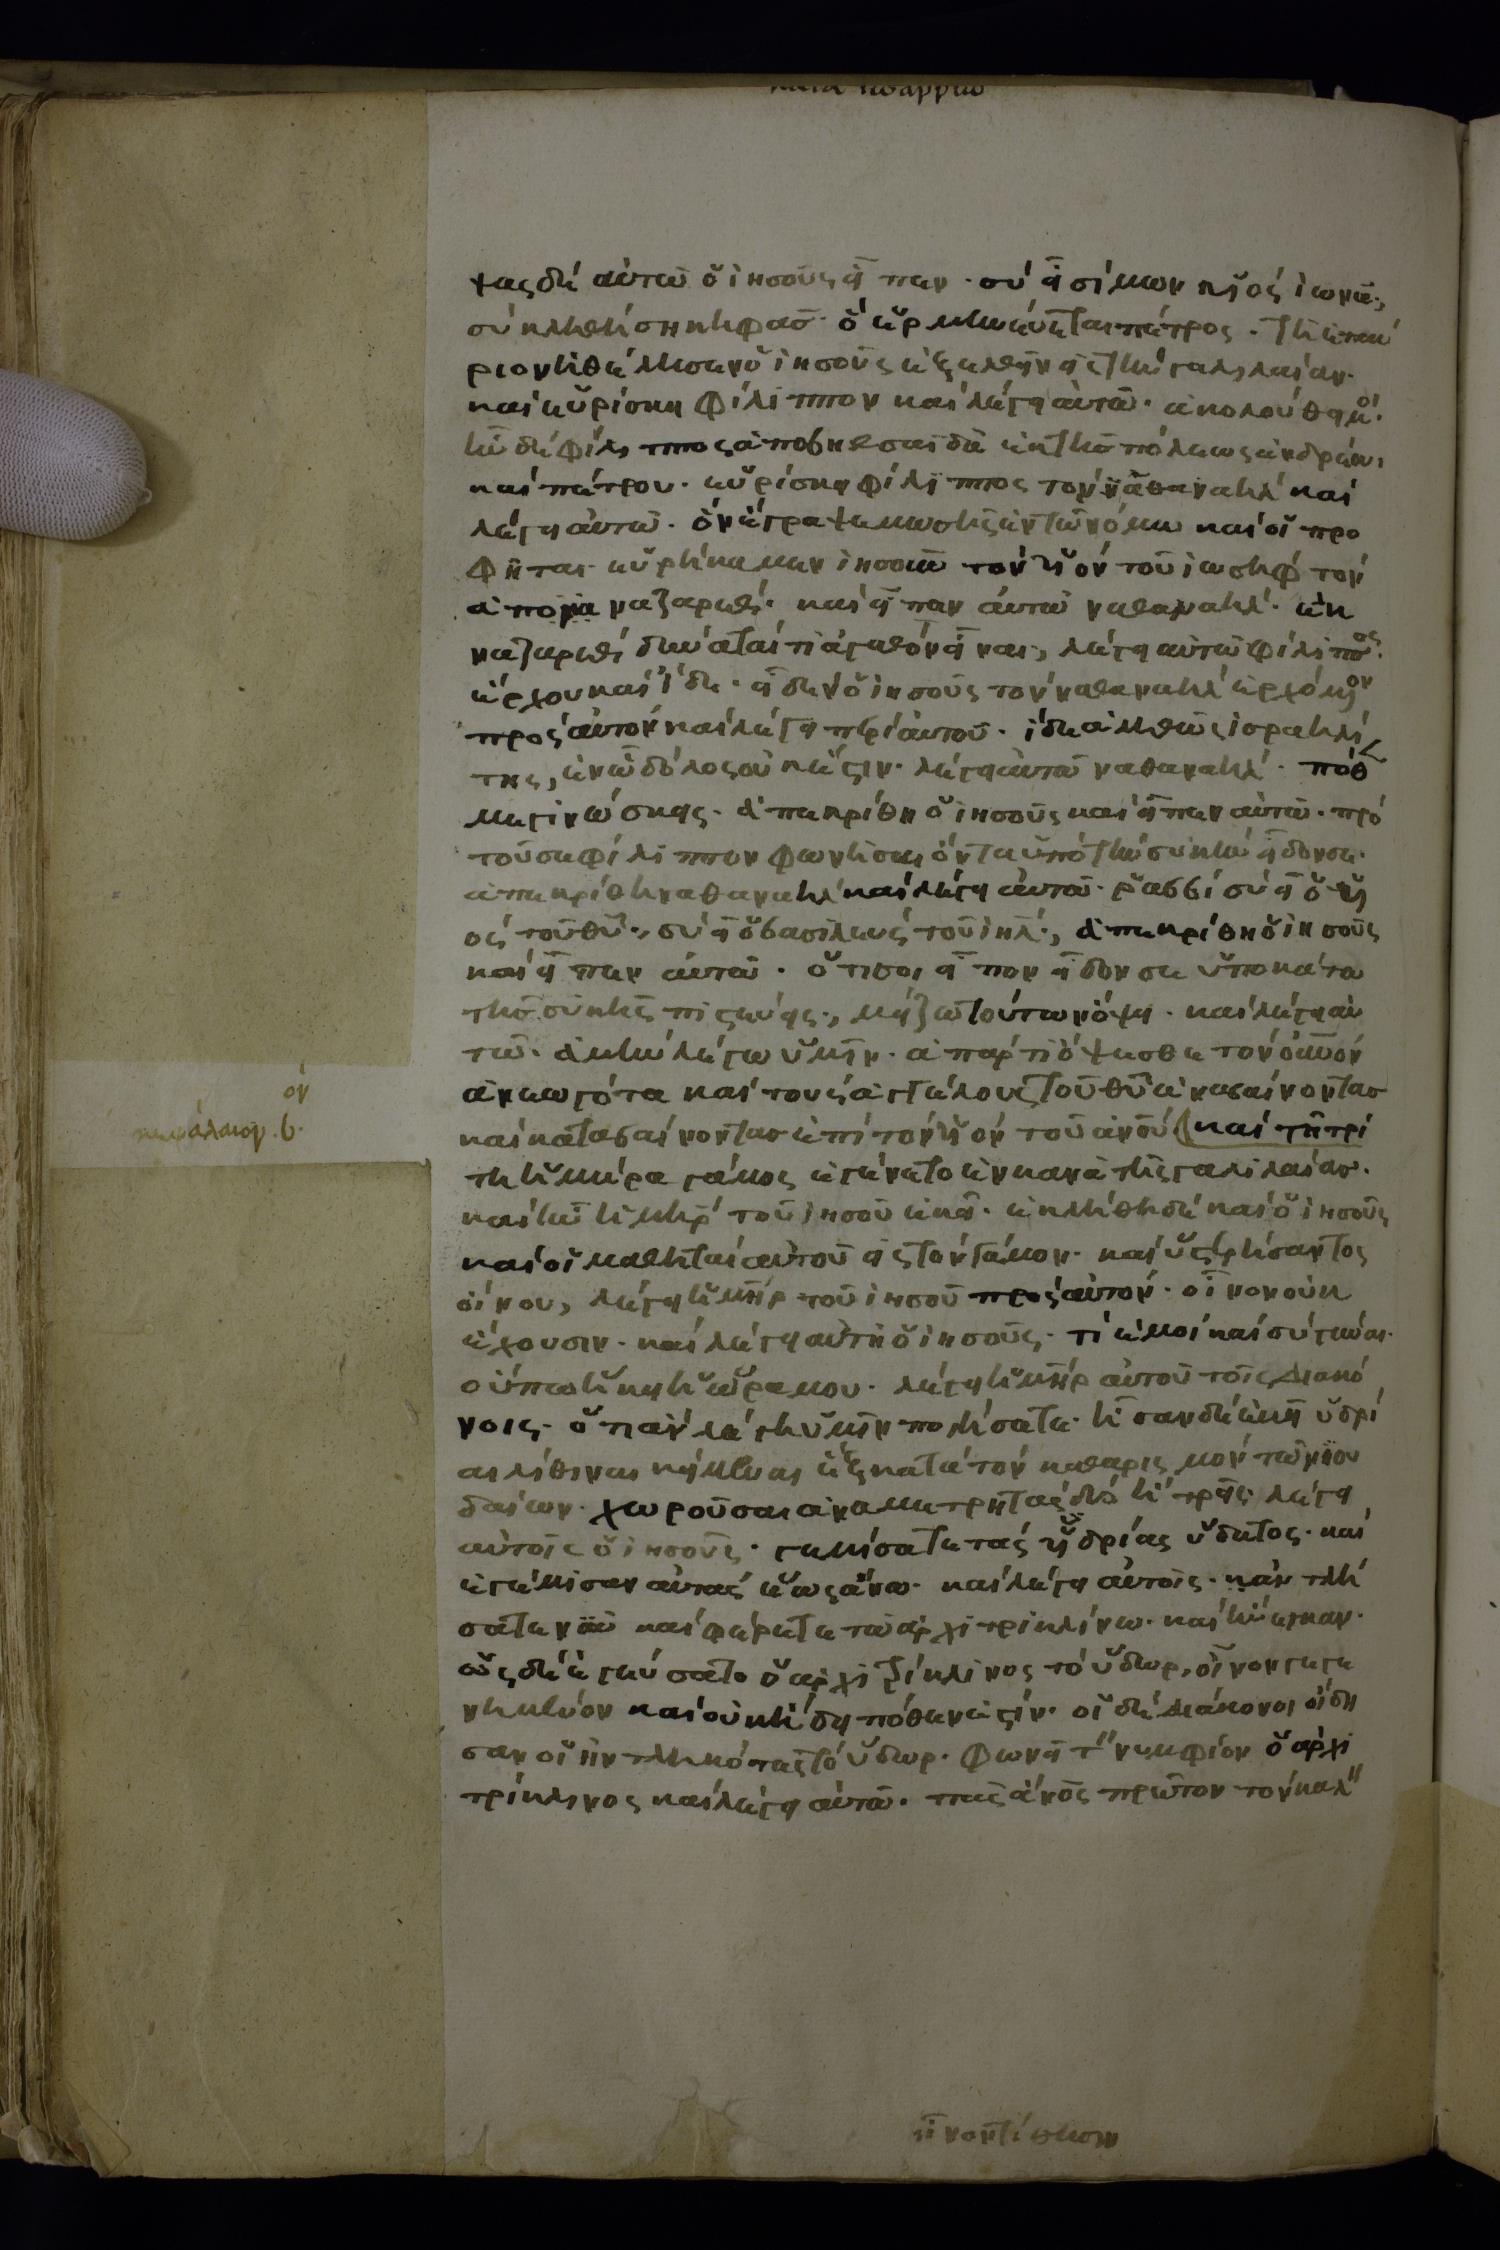 κατὰ ἰωάννην
ψας δὲ αὐτῶ ὁ ἰησοῦς εἶπεν· σὺ εἶ σίμων υἱὸς ἰωνᾶ·,
σὺ κληθήση κηφᾶσ· ὃ ἑρμηνεύεται πέτρος. τῆ ἐπαύ
ριον ἠθέλησεν ὁ ἰησοῦς ἐξελθεῖν εἰς τὴν γαλιλαίαν.
καὶ εὑρίσκει φίλιππον καὶ λέγει αὐτῶ· ἀκολούθει μοί·
ἦν δὲ φίλιππος ἀπὸ βηθσαϊδὰ ἐκ τῆσ πόλεως ἀνδρέου
καὶ πέτρου. εὑρίσκει φίλιππος τὸν ναθαναὴλ καὶ
λέγει αὐτῶ. ὃν ἔγραψε μωσῆς ἐν τῶ νόμω καὶ οἱ προ
φῆται εὑρήκαμεν ἰησοῦν τὸν υἱὸν τοῦ ἰωσὴφ τὸν
ἀπὸ να ναζαρὲθ· καὶ εἶπεν αὐτῶ ναθαναὴλ· ἐκ
ναζαρὲθ δύναταί τι ἀγαθὸν εἶναι·, λέγει αὐτῶ φίλιππος·
ἔρχου καὶ ἴδε· εἶδεν ὁ ἰησοῦς τὸν ναθαναὴλ ἐρχόμενον
πρὸς αὐτὸν καὶ λέγει περὶ αὐτοῦ· ἴδε ἀληθῶς ἰσραηλί
της, ἐν ὧ δόλος οὐκ ἔστιν· λέγει αὐτῶ ναθαναὴλ· πόθεν
με γινώσκεις· ἀπεκρίθη ὁ ἰησοῦς καὶ εἶπεν αὐτῶ· πρὸ
τοῦ σε φίλιππον φωνῆσαι ὄντα ὑπὸ τὴν συκῆν εἶδον σε·
ἀπεκρίθη ναθαναὴλ καὶ λέγει αὐτῶ· ῥαββὶ σὺ εἶ ὁ υἱ
ὸς τοῦ θυ·, σὺ εἶ ὁ βασιλεὺς τοῦ ἰηλ·, ἀπεκρίθη ὁ ἰησοῦς
καὶ εἶπεν αὐτῶ· ὅτι σοι εἶπον εἶδον σε ὑποκάτω
τῆσ συκῆς πιστεύεις·, μείζω τούτων ὄψει· καὶ λέγει αὐ
τῶ· ἀμὴν λέγω ὑμῖν· ἀπάρτι ὄψεσθε τὸν οὐνὸν
ἀνεωγότα καὶ τοὺς ἀγγέλους τοῦ θυ ἀναβαίνοντασ
καὶ καταβαίνοντασ ἐπὶ τὸν υἱὸν τοῦ ἀνου (καὶ τῆ τρί
τη ἡμέρα γάμος ἐγένετο ἐν κανὰ τῆς γαλιλαίασ.
καὶ ἦν ἡ μηρ τοῦ ἰησοῦ ἐκεῖ· ἐκλήθη δὲ καὶ ὁ ἰησοῦς
καὶ οἱ μαθηταὶ αὐτοῦ εἰς τὸν γάμον· καὶ ὑστερήσαντος
οἴνου, λέγει ἡ μηρ τοῦ ἰησοῦ πρὸς αὐτόν· οἶνον οὐκ
ἔχουσιν· καὶ λέγει αὐτῆ ὁ ἰησοῦς· τί ἐμοὶ καὶ σὺ γύναι·
οὔπω ἥκει ἡ ὥρα μου· λέγει ἡ μηρ αὐτοῦ τοῖς διακό
νοις· ὅτι ἂν λέγη ὑμῖν ποιήσατε· ἦσαν δὲ ἐκεῖ ὑδρί
αι λίθιναι κείμεναι ἓξ κατὰ τὸν καθαρισμὸν τῶν ἰου
δαίων· χωροῦσαι ἀνὰ μετρητὰς δύο ἢ τρεῖς· λέγει
αὐτοῖς ὁ ἰησοῦς· γεμίσατε τὰς ὑδρίας ὕδατος· καὶ
ἐγέμισαν αὐτὰς ἕως ἄνω· καὶ λέγει αὐτοῖς· ἀντλή
σατε νῦν καὶ φέρετε τῶ ἀρχιτρικλίνω· καὶ ἤνεγκαν·
ὡς δὲ ἐγεύσατο ὁ ἀρχιτρίκλινος τὸ ὕδωρ, οἶνον γεγε
νημένον καὶ οὐκ ἤδει πόθεν ἐστίν· οἱ δὲ διάκονοι ᾔδει
σαν οἱ ἠντληκότες τὸ ὕδωρ· φωνεῖ τὸν νυμφίον ὁ ἀρχι
τρίκλινος καὶ λέγει αὐτῶ· πᾶς ἀνος πρῶτον τὸν καλὸν
κεφάλαιον. β·
οἶνον τίθησιν